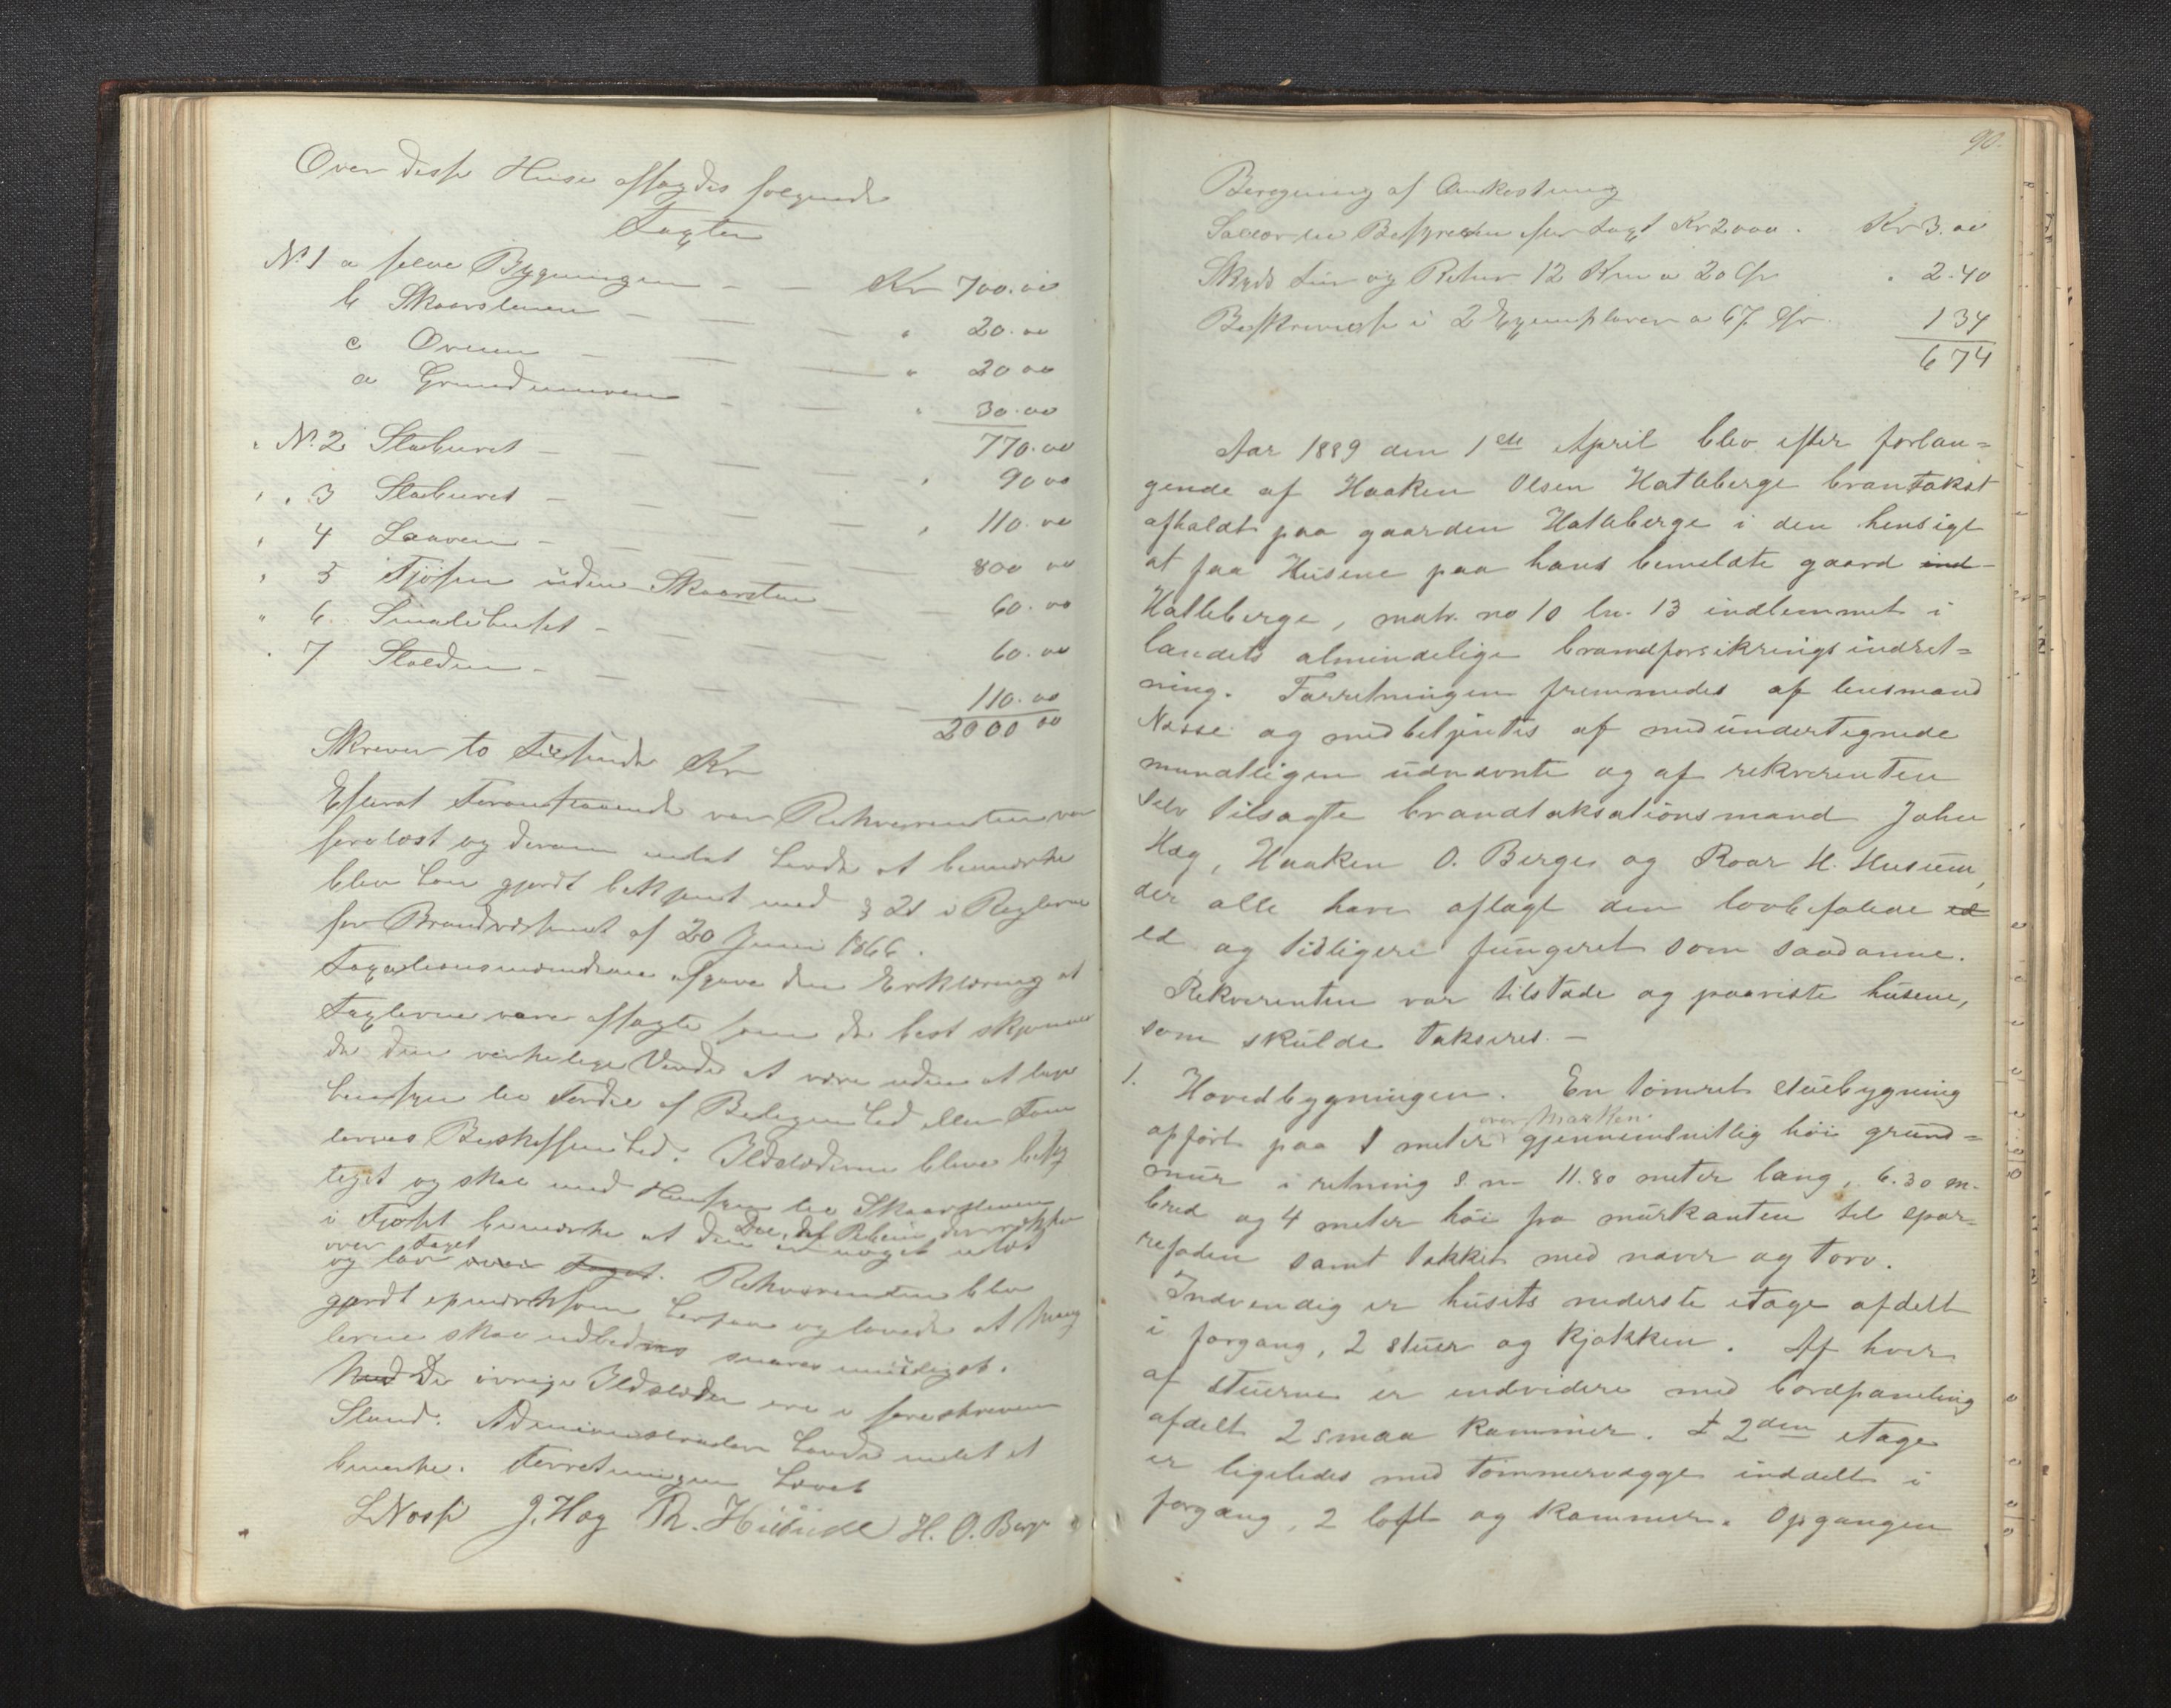 Over disse Huse afsagdes følgende
Taxter
No 1 a selve Bygningen — — Kr 700.00
b Skaarstenen — — — " 20.00
c Ovnen — — — " 20 00
d Grundmuren — — " 30.00
770.00
" No. 2 Staburet — — — " 90 00
" " 3 Staburet — — — " 110.00
" 4 Laaven — — — 800 00
" 5 Fjøsen uden Skaarsten — — 60.00
" 6. Smalehuset — — — 60.00
" 7 Stalden — — — 110.00
2000 00
Skriver to Tusinde Kr
Efterat Foranstaaende var Rekvirenten
forelæst og denne intet havde at bemærke
blev han gjordt bekjent med § 21 i Reglerne
for Brandvæsenet af 20 Juni 1866.
Taxationsmændene afgave den Erklæring at
Taxterne vare afsagte som de best skjønner
de den virkelige Værdi at være uden at tage
Hensyn til Fordel af Beliggenhed eller Tom
ternes Beskaffenhed. Ildstederne bleve besig
tiget og skal med Hensyn til Skaarstenen
i Fjøset bemærke at den er noget utæt
over Taget
og lav over Taget. Rekvirenten blev
gjordt opmærksom herpaa og lovede at Mang
lerne skal udbedres snarest muligst.
Med De øvrige Ildsteder ere i foreskreven
Stand. Administrator havde intet at
bemerke. Forretningen hævet
L Nosse J. Hæg R. Husum H. O. Berge
90.
Beregning af Omkostning
Salær til Bestyreren for Taxt Kr 2000. Kr 3.00
Skyds Tur og Retur 12 Km a 20 Ør " 2.40
Beskrivelse i 2 Exemplarer a 67 Ør. 1 34
6 74
Aar 1889 den 1ste April blev efter forlan=
gende af Haaken Olsen Hatleberge brantakst
afholdt paa gaarden Hatleberge i den hensigt
at faa Husene paa hans bemeldte gaard ind-
Hatleberge, matr. no 10 ln. 13 indlemmet i
landets almindelige brandforsikringsindret=
ning. Forretningen fremmedes af lensmand
Nosse og medbetjentes af medundertegnede
mundtligen udnævnte og af rekvirenten
selv tilsagte brandtaksationsmænd John
Hæg, Haaken O. Berge og Roar H. Husum,
der alle have aflagt den lovbefalede ed
ed og tidligere fungeret som saadanne.
Rekvirenten var tilstæde og paaviste husene,
som skulde takseres. —
1. Hovedbygningen. En tømret stuebygning
over Marken
opført paa 1 meter gjennemsnitlig høi grund=
mur i retning s. n. 11.80 meter lang, 6.30 m.
bred og 4 meter høi fra murkanten til spær=
refoden samt tækket med næver og torv.
Indvendig er husets nederste etage afdelt
i forgang, 2 stuer og kjøkken. Af hver
af stuerne er endvidere med bordpaneling
afdelt 2 smaa kammer. I 2den etage
er ligeledes med tømmervægge inddelt i
forgang, 2 loft og kammer. Opgangen